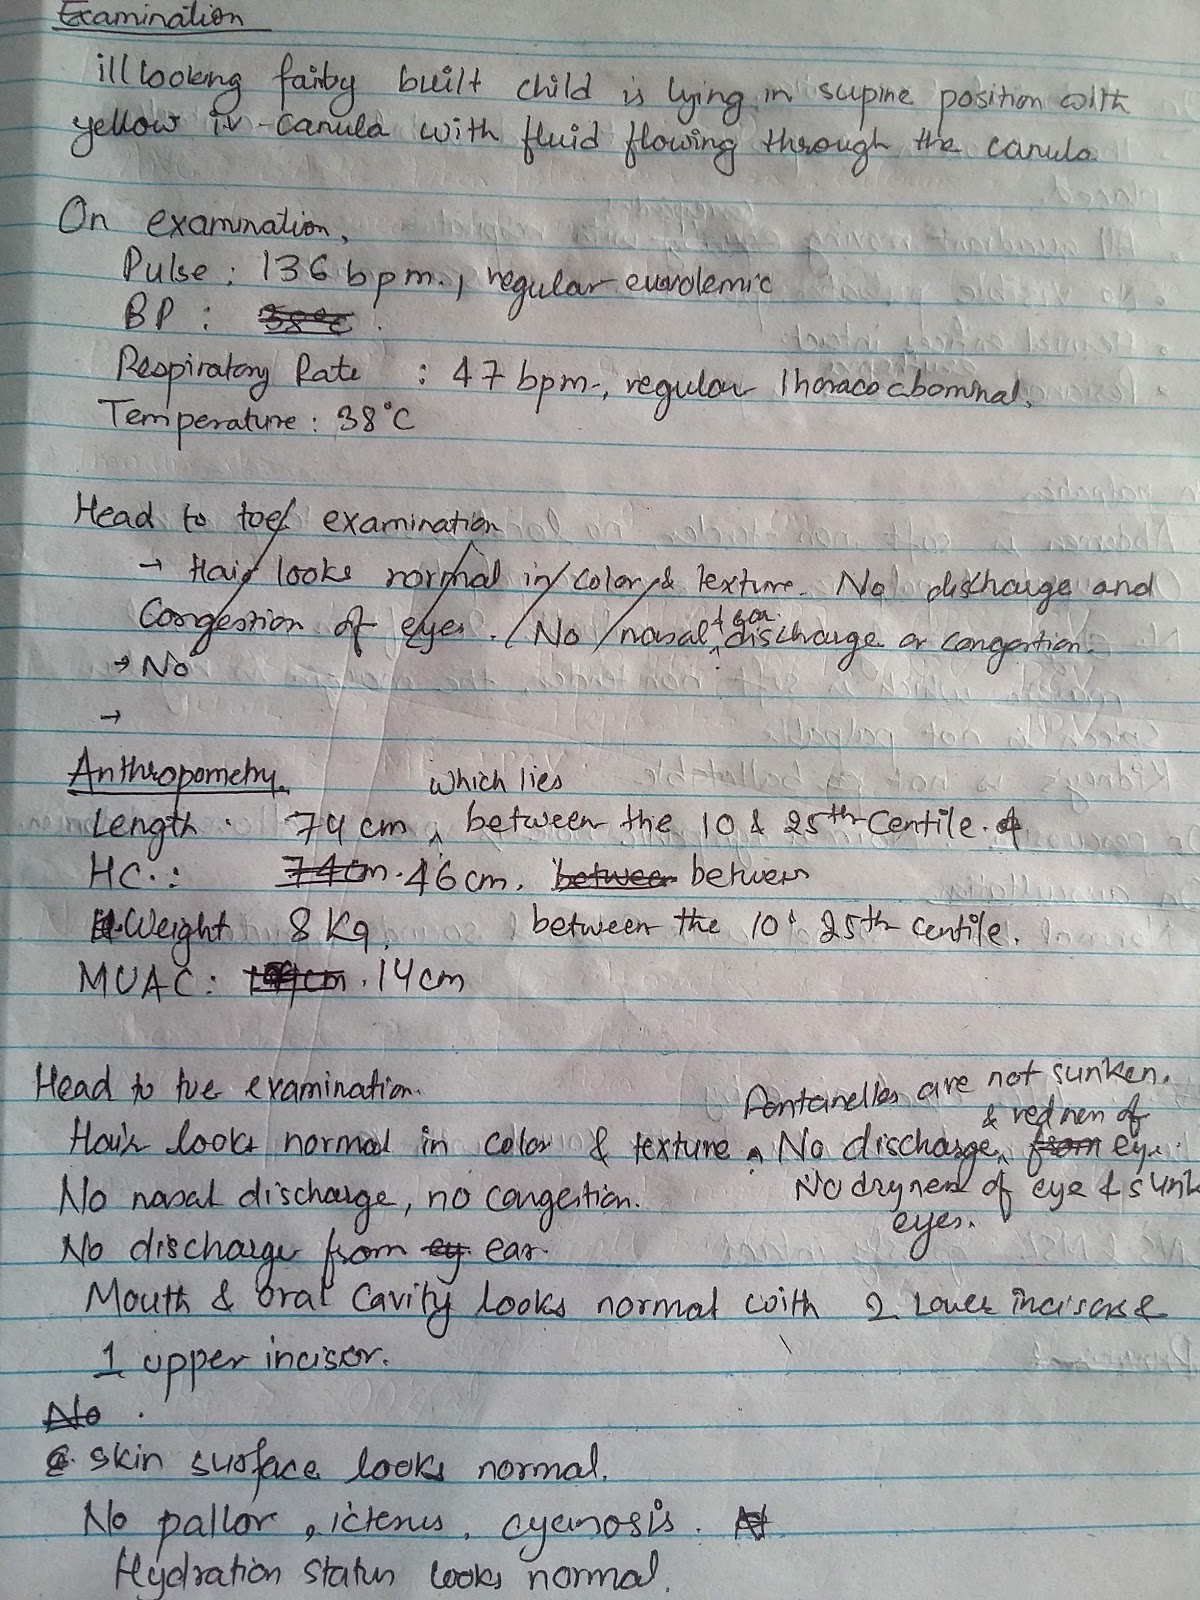 Examination
ill looking fairly built child is lying in supine position with
yellow iv-canula with fluid flowing through the canula.
On examination,
Pulse : 136 bpm., regular euvolemic
BP : 38°C .
Respiratory Rate : 47 bpm-, regular Thoracoabominal.
Temperature : 38°C
Head to toe examination
→ Hair looks normal in color & texture. No discharge and
Congestion of eyes. No nasal, + ear. discharge or congestion.
→ No
→
Anthropometry.
which lies
Length . 74 cm ^ between the 10 & 25th Centile.
HC. : 74cm. 46cm. between between
Weight 8 Kg, between the 10 & 25th centile.
MUAC : . 14 cm
Head to toe examination.
Fontanelles are not sunken.
& redness of
Hair looks normal in color & texture ^ No discharge ^ from eye.
No nasal discharge, no congestion. No dryness of eye & sunk
eyes.
No discharge from ey ear.
Mouth & oral Cavity looks normal with 2 Lower incisors &
1 upper incisor.
No .
skin surface looks normal.
No pallor, icterus, cyanosis. N
Hydration status looks normal.